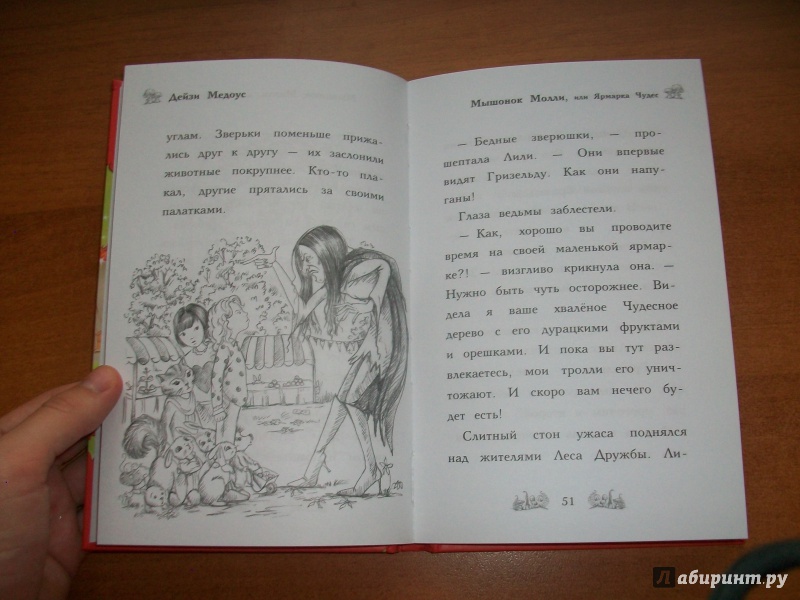 Дейзи Медоус
углам. Зверьки поменьше прижа-
лись друг к другу — их заслонили
животные покрупнее. Кто-то пла-
кал, другие прятались за своими
палатками.
Мышонок Молли, или Ярмарка Чудес
— Бедные зверюшки, — про-
шептала Лили. — Они впервые
видят Гризельду. Как они напу-
ганы!
Глаза ведьмы заблестели.
— Как, хорошо вы проводите
время на своей маленькой ярмар-
ке?! — визгливо крикнула она. —
Нужно быть чуть осторожнее. Ви-
дела я ваше хвалёное Чудесное
дерево с его дурацкими фруктами
и орешками. И пока вы тут раз-
влекаетесь, мои тролли его унич-
тожают. И скоро вам нечего бу-
дет есть!
Слитный стон ужаса поднялся
над жителями Леса Дружбы. Ли-
51
Лабиринт.ру